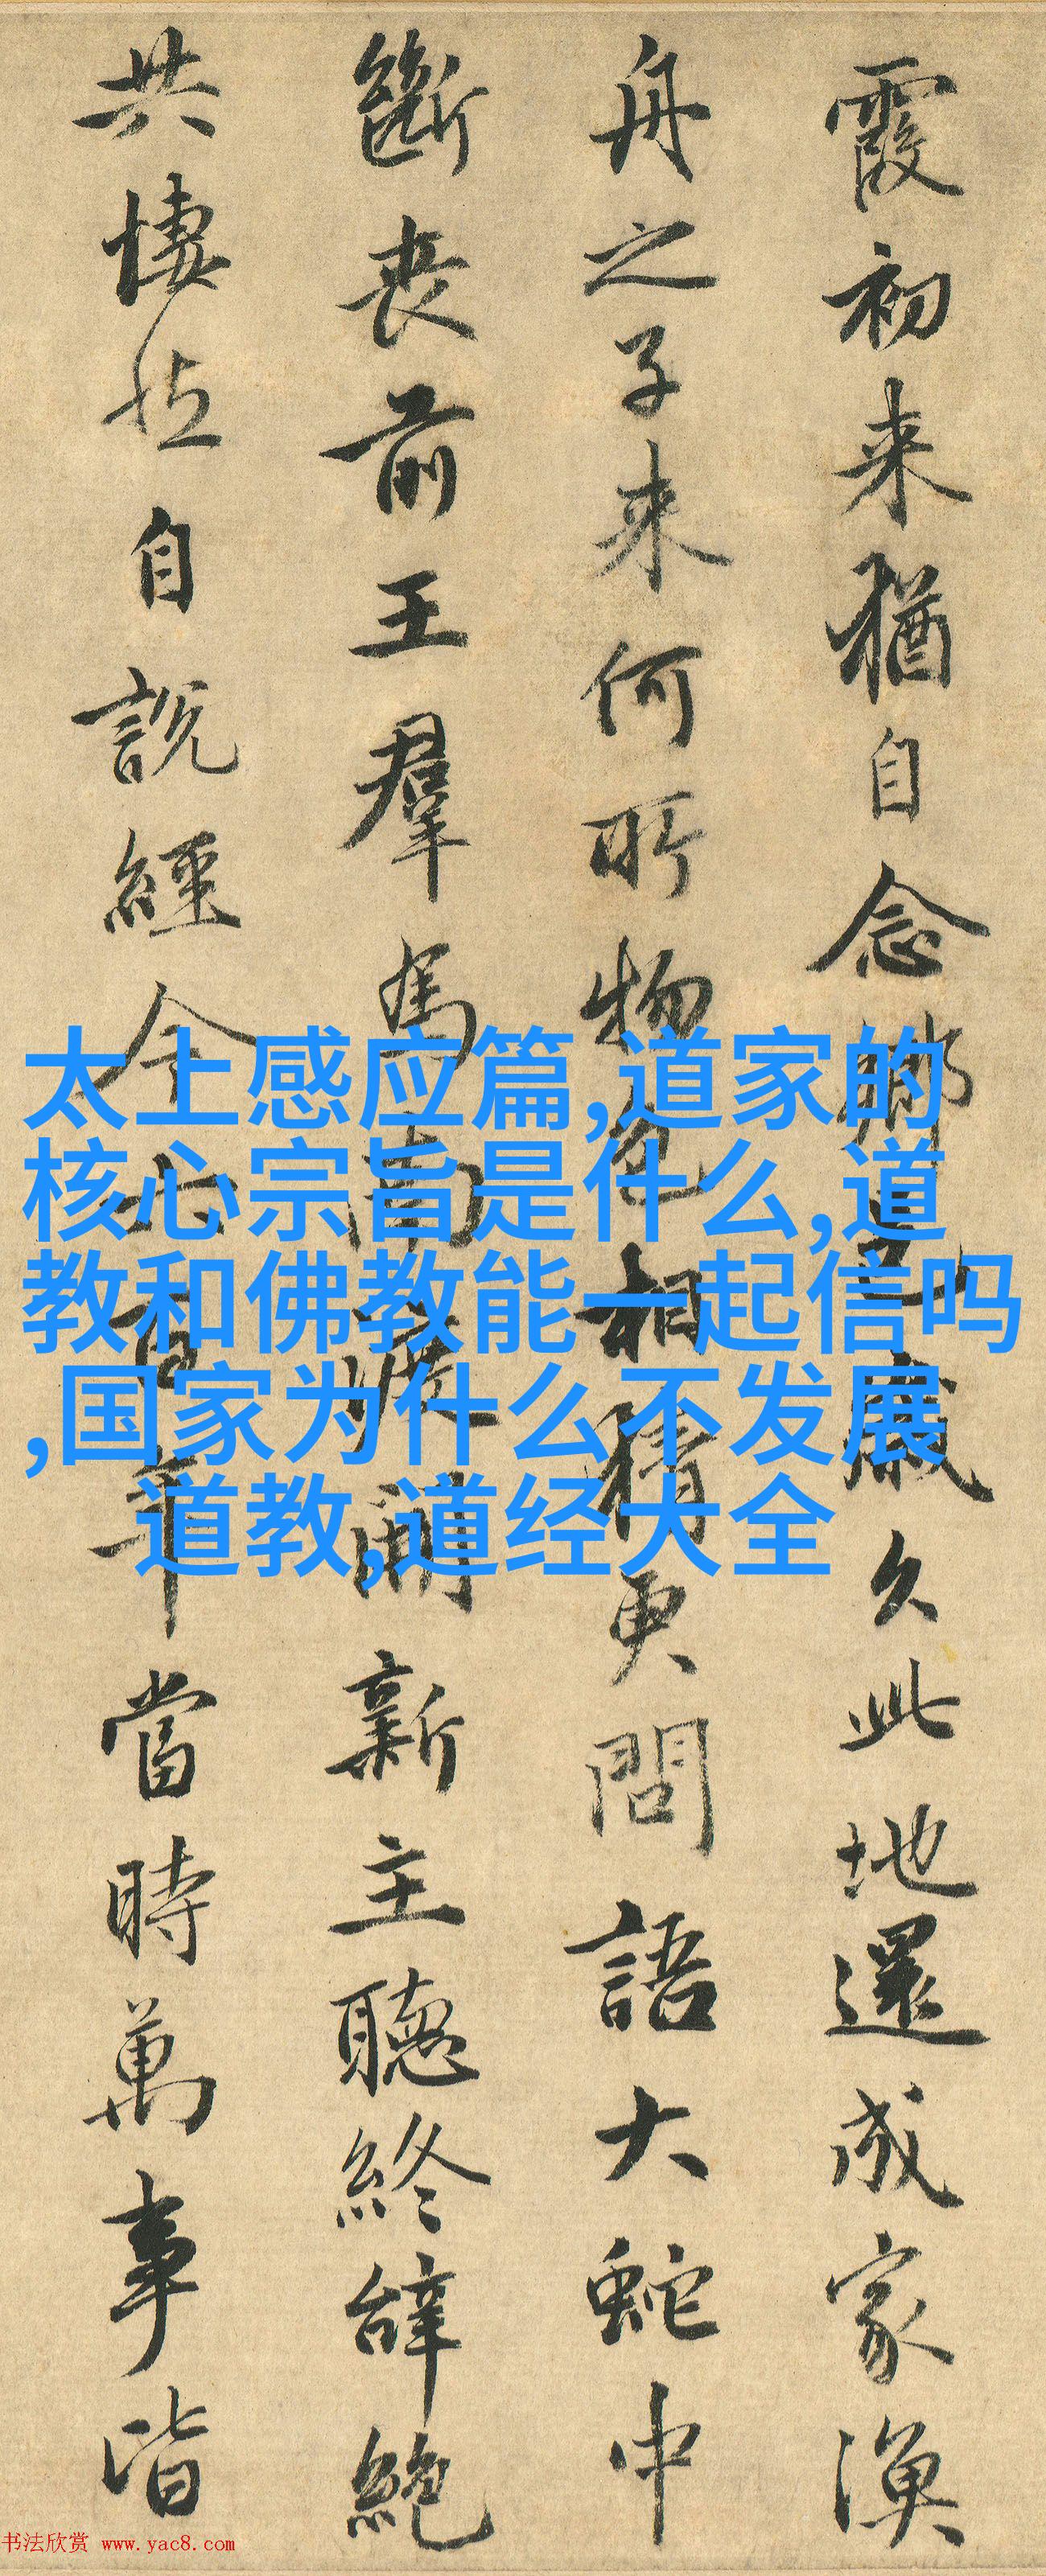 霞初来猶自念鄉邑歲久此地還成家漁
舟之子来何所物色相猜更問語大蛇中
斷喪前王羣馬南渡開新主聽終辭絶
共悽然自說經今六百年當時萬事皆
太上感应篇,道家的
核心宗旨是什么,道
教和佛教能一起信吗
,国家为什么不发展
道教,道经大全
书法欣赏 www.yac8.com